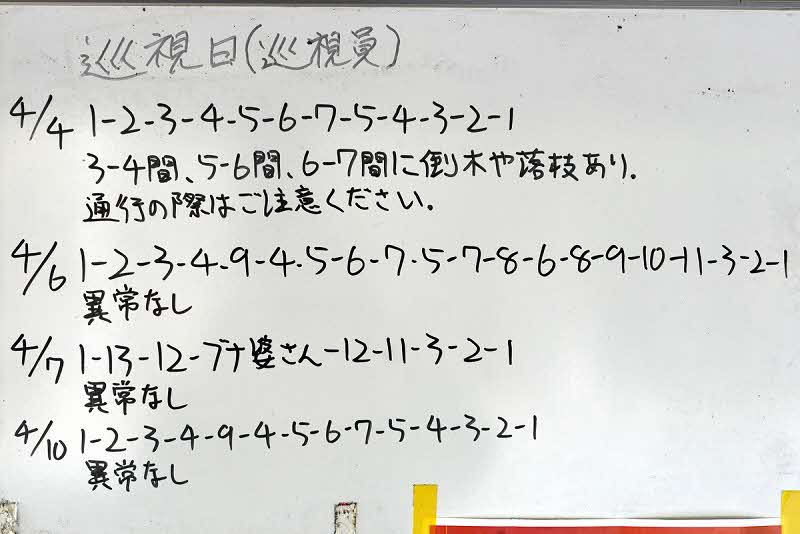 巡視日(巡視員)
4/4 1-2-3-4-5-6-7-5-4-3-2-1
3-4間、5-6間、6-7間に倒木や落枝あり.
通行の際はご注意ください.
4/6 1-2-3-4-9-4-5-6-7-5-7-8-6-8-9-10-11-3-2-1
異常なし
4/7 1-13-12-ブナ婆さん-12-11-3-2-1
異常なし
4/10 1-2-3-4-9-4-5-6-7-5-4-3-2-1
異常なし